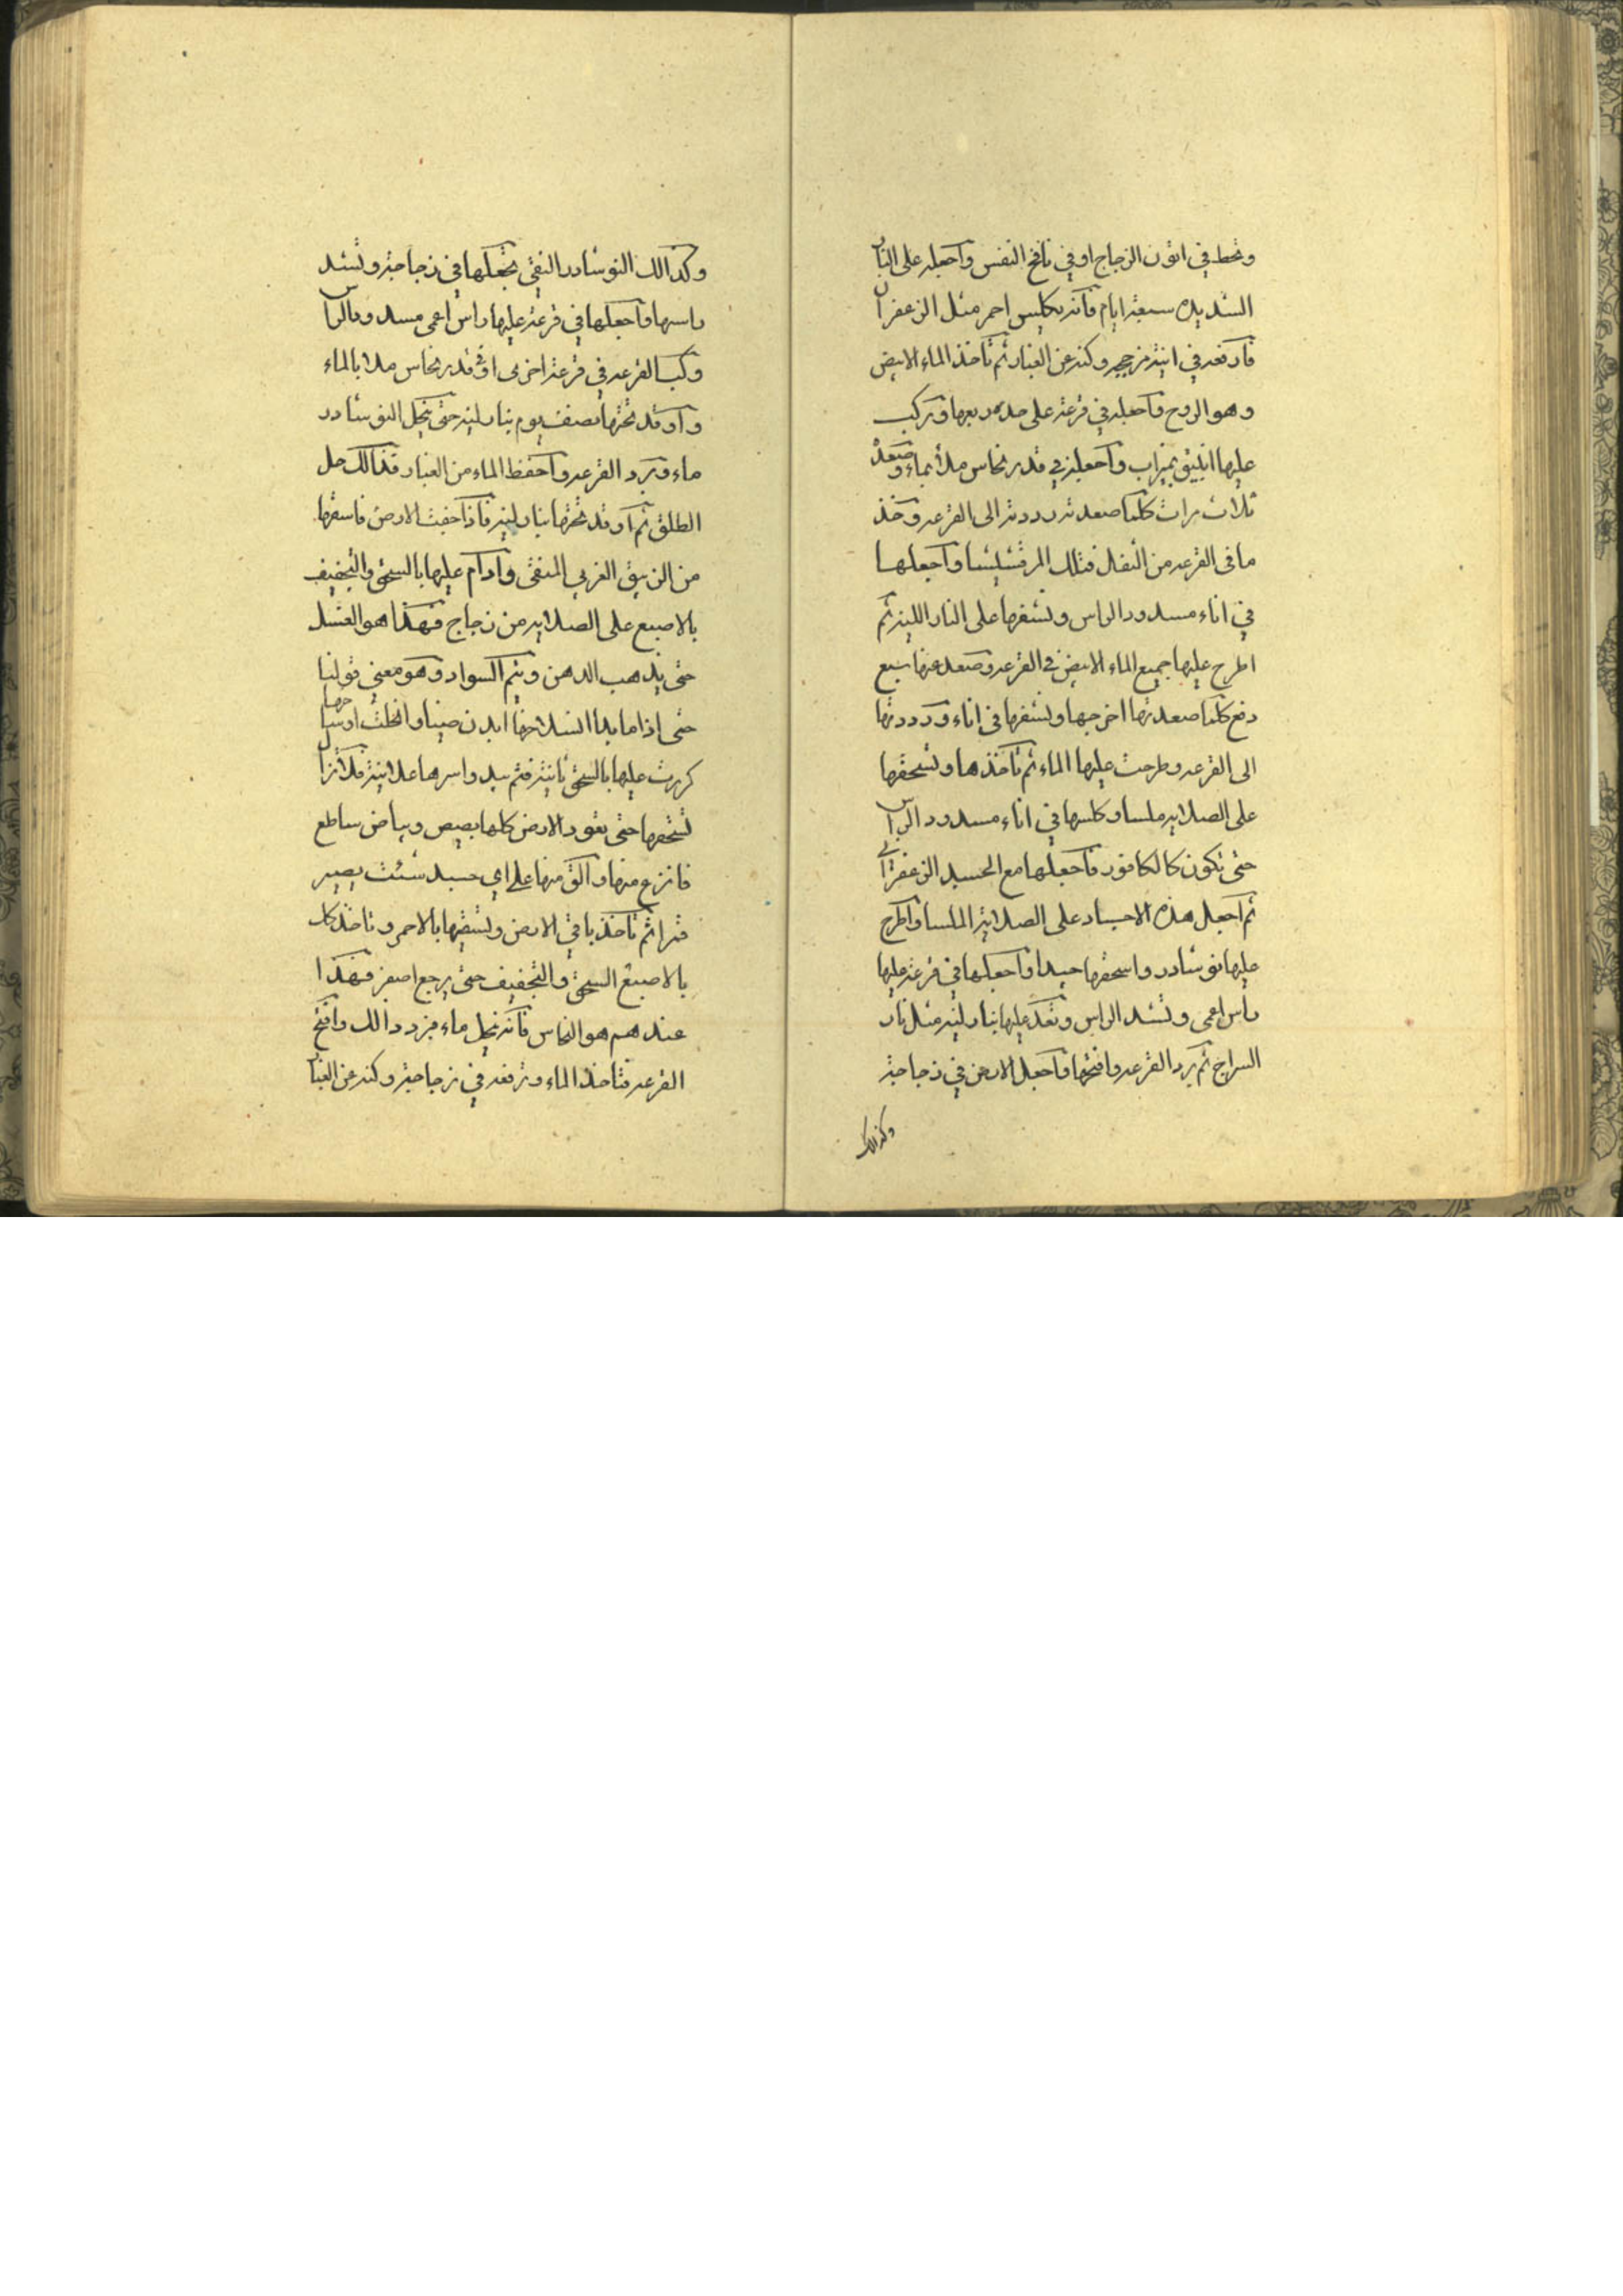 وتحط في اتون الزجاج او في نافخ النفس واجعله على النار
الشديده سبعة ايام فانه يكلس احمر مثل الزعفران
فارفعه في انية من حجر وكنه عن الغبار ثم تاخذ الماء الابيض
وهو الروح فاجعله في قرعة على حده ربعها وتركب
عليها انبيق بميزاب واجعلها في قدر نحاس ملأ بماء وصعده
ثلاث مرات كلما صعدته رددته الى القرعه وخذ
ما في القرعه من الثفل فتلك المرقشيشا واجعلها
في اناء مسدود الراس وتشفها على النار اللينه ثم
اطرح عليها جميع الماء الابيض في القرعه وصعد عنها سبع
دفع كلما صعدتها اخرجها وتشفها في اناء ورددتها
الى القرعه وطرحت عليها الماء ثم تاخذها وتسحقها
على الصلايه ملسا وكلسها في اناء مسدود الراس
حتى تكون كالكافور فاجعلها مع الجسد الزعفراني
ثم اجعل هذه الاجساد على الصلاية الملسا واطرح
عليها نوشادر واسحقها جيدا واجعلها في قرعة عليها
راس اعمى وتشد الراس وتقد عليها بنار لينه مثل نار
السراج ثم برد القرعه وافتحها فاجعل الارض في زجاجة
وكذالك
وكذالك النوشادر النقي تجعلها في زجاجة وتشد
راسها واجعلها في قرعة عليها راس اعمى مسدود الراس
وكب القرعه في قرعة اخرى او في قدر نحاس ملا بالماء
واوقد تحتها نصف يوم بنار لينه حتى ينحل النوشادر
ماء وبرد القرعه واحفظ الماء من الغبار فذالك حل
الطلق ثم اوقد تحتها بنار لينه فاذا جفت الارض فاسقها
من الزيبق الغربي المنقى وادام عليها بالسحق والتجفيف
بالاصبع على الصلايه من زجاج فهذا هو الغسل
حتى يذهب الدهن ويتم السواد وهو معنى قولنا
حتى اذا ما بدا انسلاخها
كررت عليها بالسحق ثانية فثم يبدو اسرها علانية فلا تزال
تسحقها حتى تعود الارض كلها بصيص وبياض ساطع
فانزع منها والق منها على اي جسد شئت يصير
قمرا ثم تاخذ باقي الارض وتسقيها بالاحمر وتاخذ كل
بالاصبع السحق والتجفيف حتى يرجع اصفر فهذا
عندهم هو النحاس فانه ينحل ماء فزد ذالك وافتح
القرعه فتاخذ الماء وترفعه في زجاجة وكنه عن الغبار